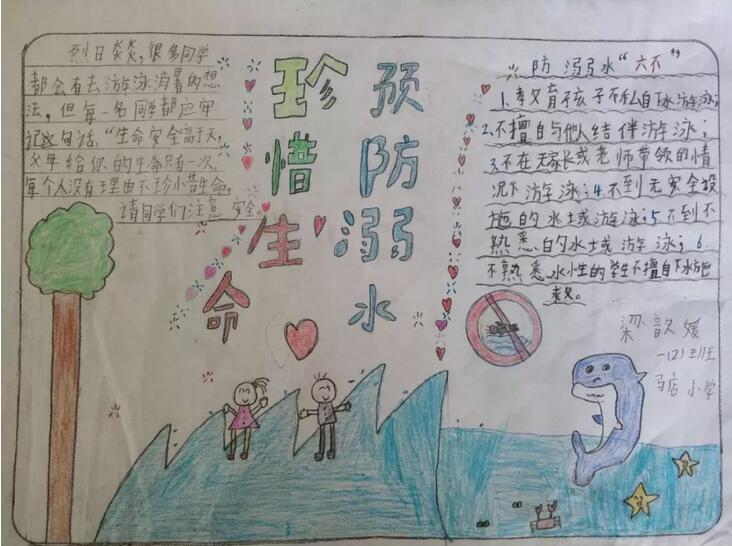 烈日炎炎,很多同学
都会有去游泳消暑的想
法,但每一名同学都应牢
记这句话,“生命安全高于天,
父母给你的生命只有一次,
每个人没有理由不珍惜生命,
请同学们注意安全。
珍惜生命
预防溺水
防溺水“六不”
1.教育孩子不私自下水游泳;
2.不擅自与他人结伴游泳;
3.不在无家长或老师带领的情
况下游泳;4.不到无安全设
施的水域游泳;5.不到不
熟悉的水域游泳;6.
不熟悉水性的学生不擅自下水施
救。
梁歆媛
一(2)班
马店小学